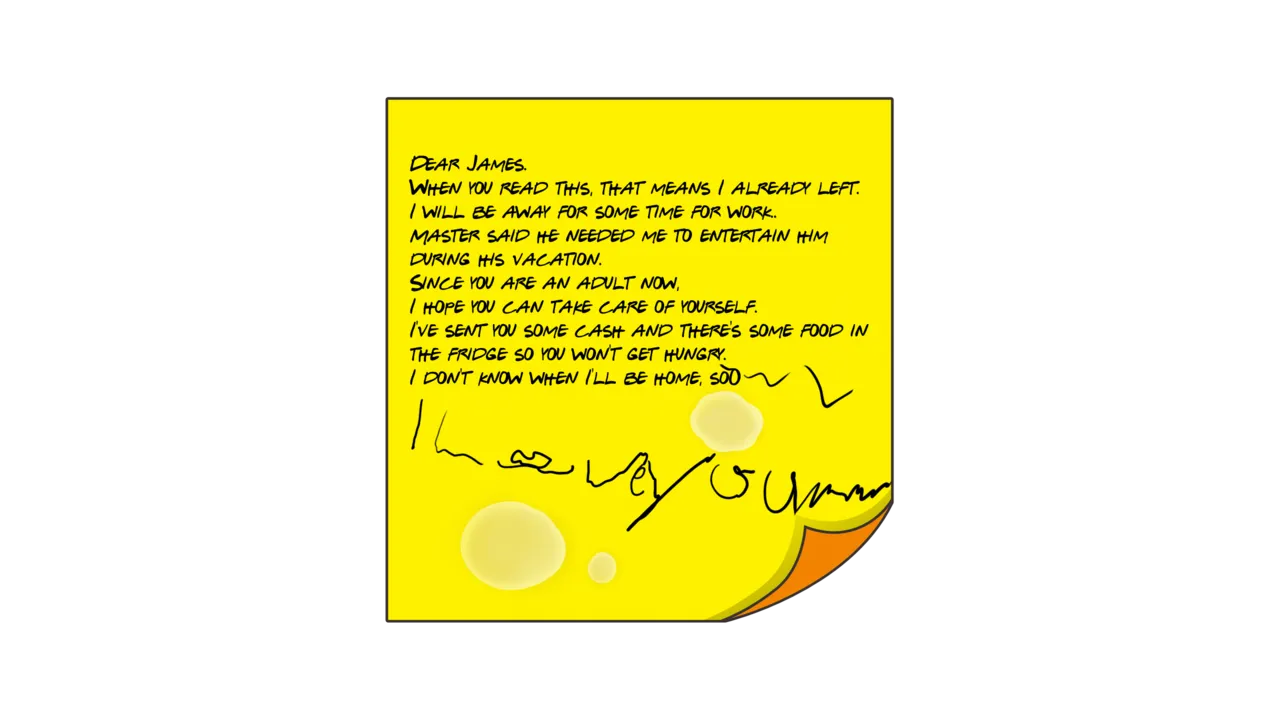 Dear James.
When you read this, that means I already left.
I will be away for some time for work.
Master said he needed me to entertain him
during his vacation.
Since you are an adult now,
I hope you can take care of yourself.
I've sent you some cash and there's some food in
the fridge so you won't get hungry.
I don't know when I'll be home, soo